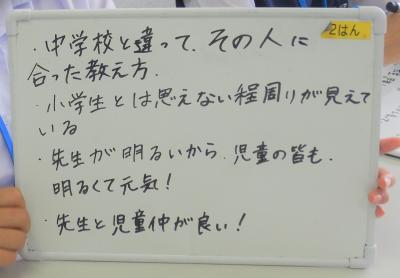 2はん
・中学校と違って、その人に
合った教え方.
・小学生とは思えない程周りが見えて
いる
・先生が明るいから、児童の皆も、
明るくて元気!
・先生と児童仲が良い!